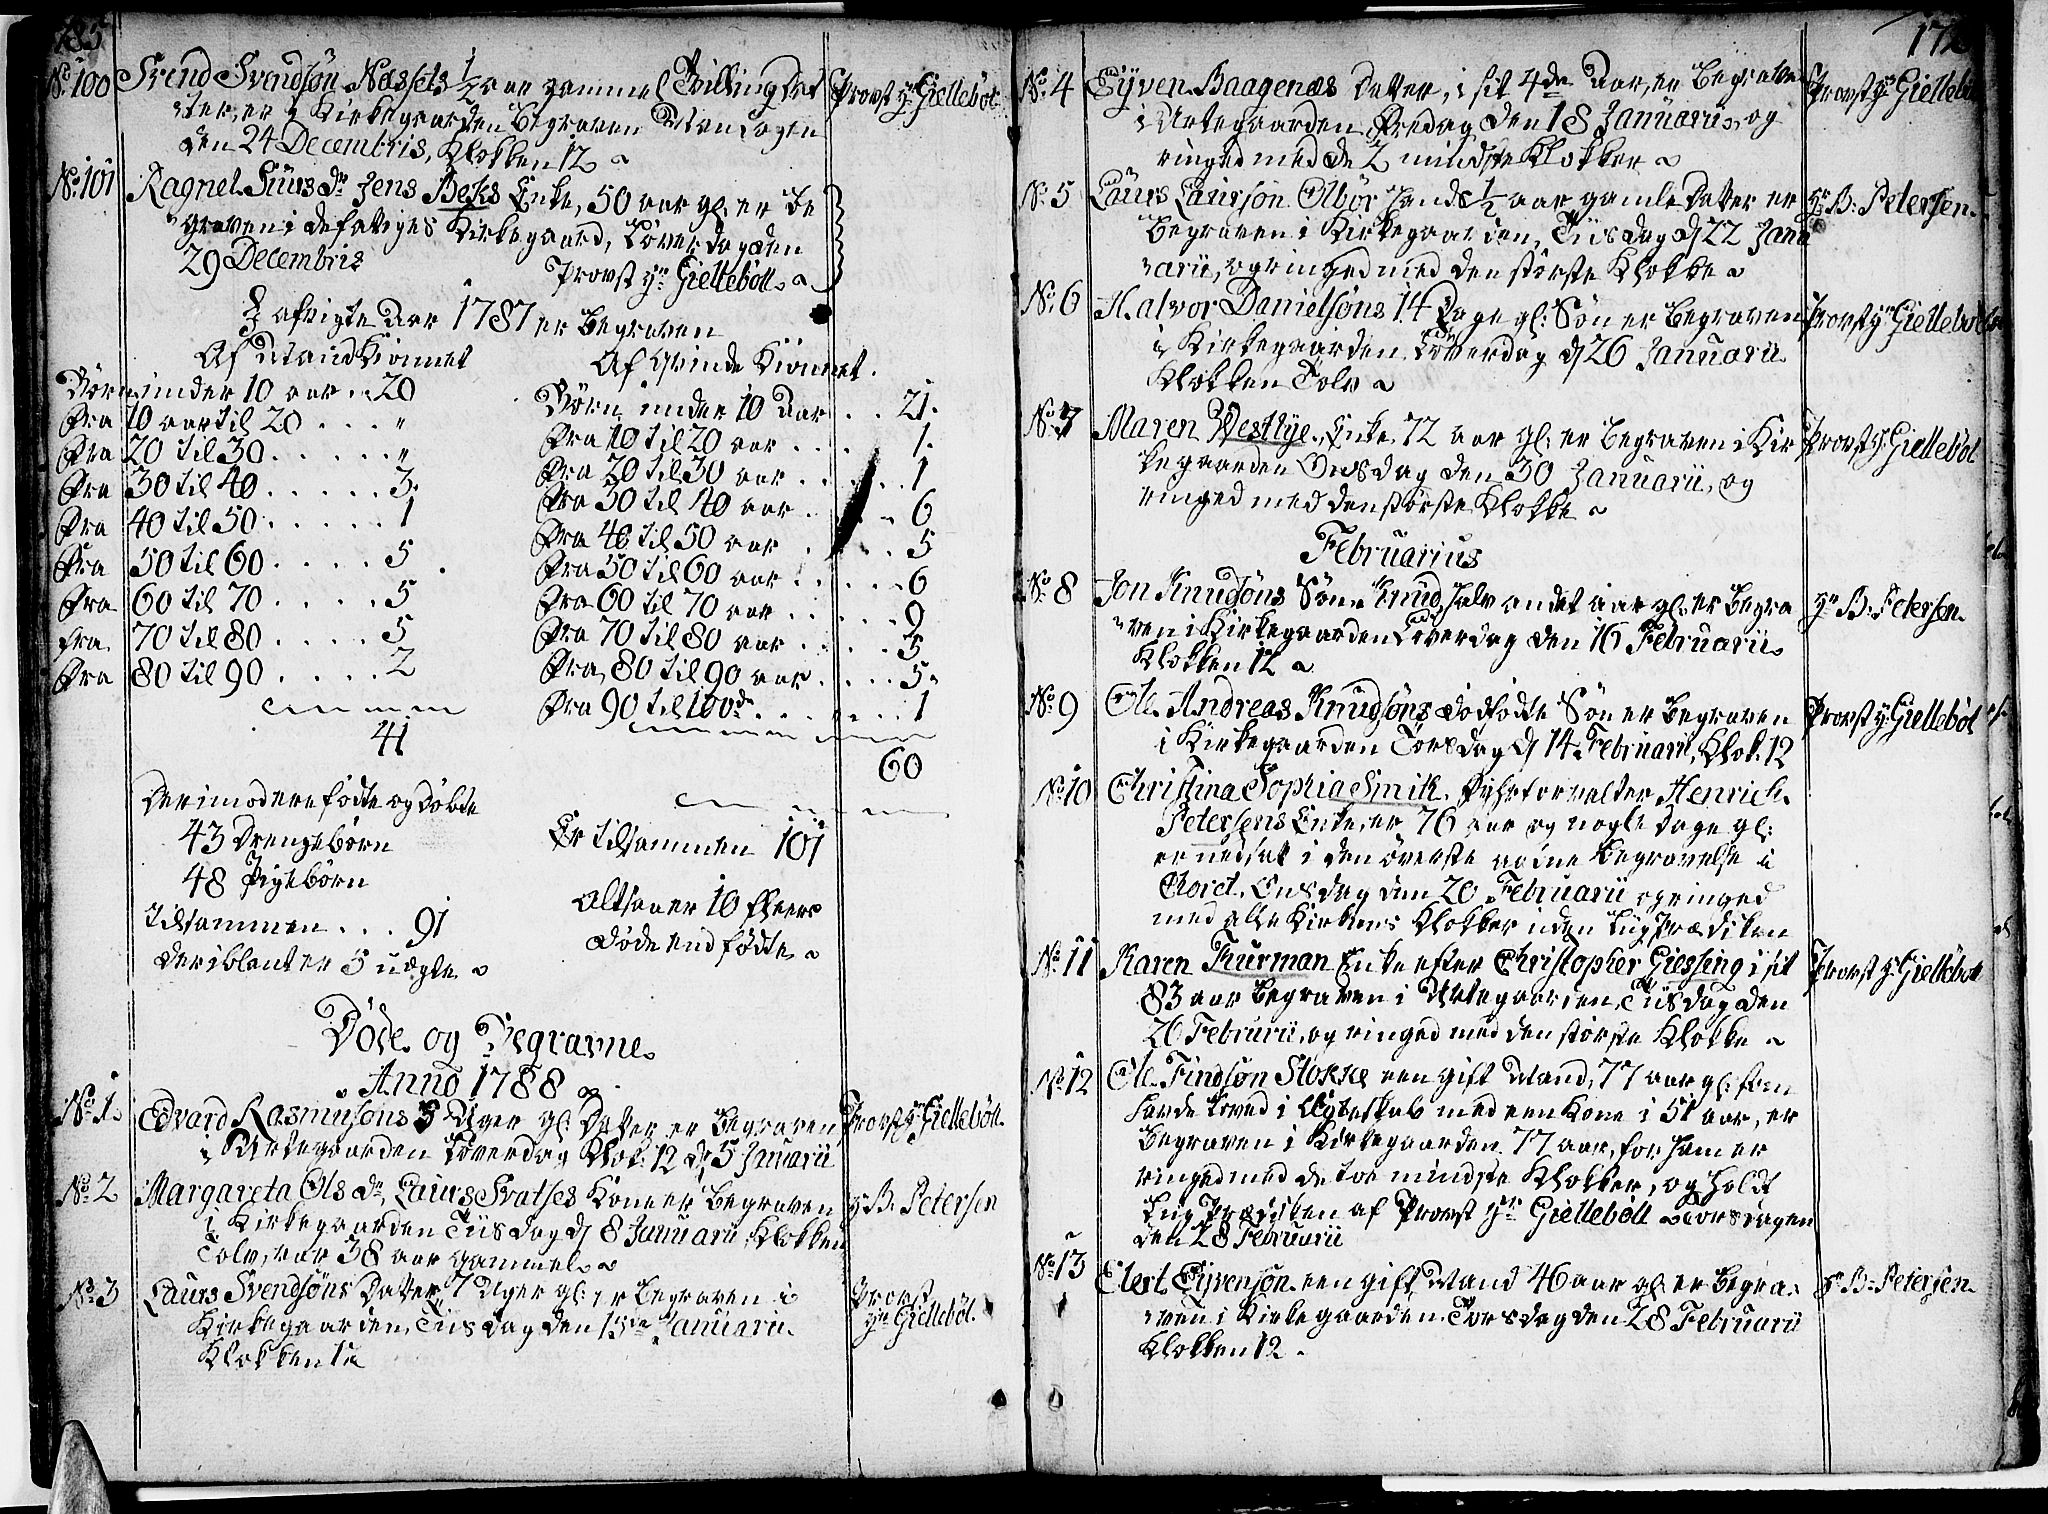 185
No 100 Svend Svendsøn Næssets 1/2 aar gammel Tvilling Dat Provst Hr Giellebøl.
ter, er i Kirkegaarden Begraven Mandagen
den 24 Decembris, Klokken 12
No 101 Ragnel Siurs dr Jens Beks Enke, 50 aar gl: er be
graven i de fatiges Kirkegaard, Løverdag den
29 Decembris Provst Hr Giellebøll.
I afvigte Aar 1787 er begraven
Af Mand Kiønnet
Børn under 10 aar .. 20
Fra 10 aar til 20 .... "
Fra 20 til 30 ...... "
Fra 30 til 40 ..... 3.
Fra 40 til 50 ..... 1
Fra 50 til 60 .... 5
Fra 60 til 70 .... 5
Fra 70 til 80 .... 5
Fra 80 til 90 .... 2
41
Af Qvinde Kiønnet.
Børn under 10 Aar .. 21.
Fra 10 til 20 aar .... 1.
Fra 20 til 30 aar ..... 1
Fra 30 til 40 aar .... 6
Fra 40 til 50 aar .... 5
Fra 50 til 60 aar ..... 6
Fra 60 til 70 aar ..... 9
Fra 70 til 80 aar .... 5
Fra 80 til 90 aar .... 5.
Fra 90 til 100de ..... 1
60
Derimod ere fødte og døbte
43 Drengebørn
48 Pigebørn
tilsammen ... 91
deriblant er 5 uægte
Er tilsammen 101
Altsaa er 10 fleere
døde end fødte
Døde og Begravne
Anno 1788
No 1. Edvard Rasmusøns 3 Uger gl: Datter er begraven Provst Hr Giellebøll.
i Urtegaarden Løverdag Klok: 12 d 5 Januarii
No 2 Margareta Ols dr, Laurs Svatses Kone er begraven Hr B. Petersen
i Kirkegaarden Tiisdag d 8 Januarii, Klokken
Tolv, var 38 aar gammel
No 3 Laurs Svendsøns Datter 7 Uger gl: er begraven i Provst
Kirkegaarden, Tiisdag den 15de Januarii Hr Giellebøl.
Klokken 12
172
No 4 Eyven Baagenæs Datter, i sit 4de Aar, er begraven Provst Hr Giellebøl
i Urtegaarden, Fredag den 18 Januarii, og
ringed med de 2 mindste Klokker
No 5 Laurs Laursøn Olbør hands 1/2 aar gamle Datter er Hr B: Petersen.
Begraven i Kirkegaarden, Tiisdag d 22 Janu
arii, og ringed med den største Klokke
No 6 Halvor Danielsøns 14 Dage gl: Søn er begraven Provst Hr Giellebøl
i Kirkegaarden Løverdag d 26 Januarii
Klokken Tolv
No 7 Maren Westlye, Enke, 72 aar gl: er begraven i Kir Provst Hr Giellebøl
kegaarden Onsdag den 30 Januarii, og
ringed med den største Klokke
Februarius
No 8 Jon Knudsøns Søn Knud, halv andet aar gl: er begra Hr B: Petersen.
ven i Kirkegaarden Løverdag den 16 Februarii
Klokken 12
No 9 Ole Andreas Knudsøns dødfødte Søn er begraven Provst Hr Giellebøl
i Kirkegaarden Torsdag d 14 Februarii, Klok: 12
No 10 Christina Sophia Smith. Fyhrforvalter Henrich
Petersens Enke, er 76 aar og nogle dage gl:
er nedsat i den øverste begravelse i
Choret, Onsdag den 20 Februarii og ringed
med alle Kirkens Klokker uden Liigprædiken
No 11 Karen Kurman Enke efter Christopher Giessing i sit Provst Hr Giellebøll
83 aar begraven i Urtegaarden, Tiisdag den
26 Februarii, og ringed med den største Klokke
No 12 Ole Findsøn Stokke een gift Mand, 77 aar gl: som
havde leved i Egteskab med een Kone i 51 aar, er
begraven i Kirkegaarden 77 aar, for ham er
ringed med de toe mindste Klokker, og holdt
Liig Prædiken af Provst Hr Giellebøll Torsdagen
den 28 Februarii
No 13 Elert Eyvensøn een gift Mand 46 aar gl: er begra Hr B: Petersen.
ven i Kirkegaarden Torsdag den 28 Februarii
Klokken 12